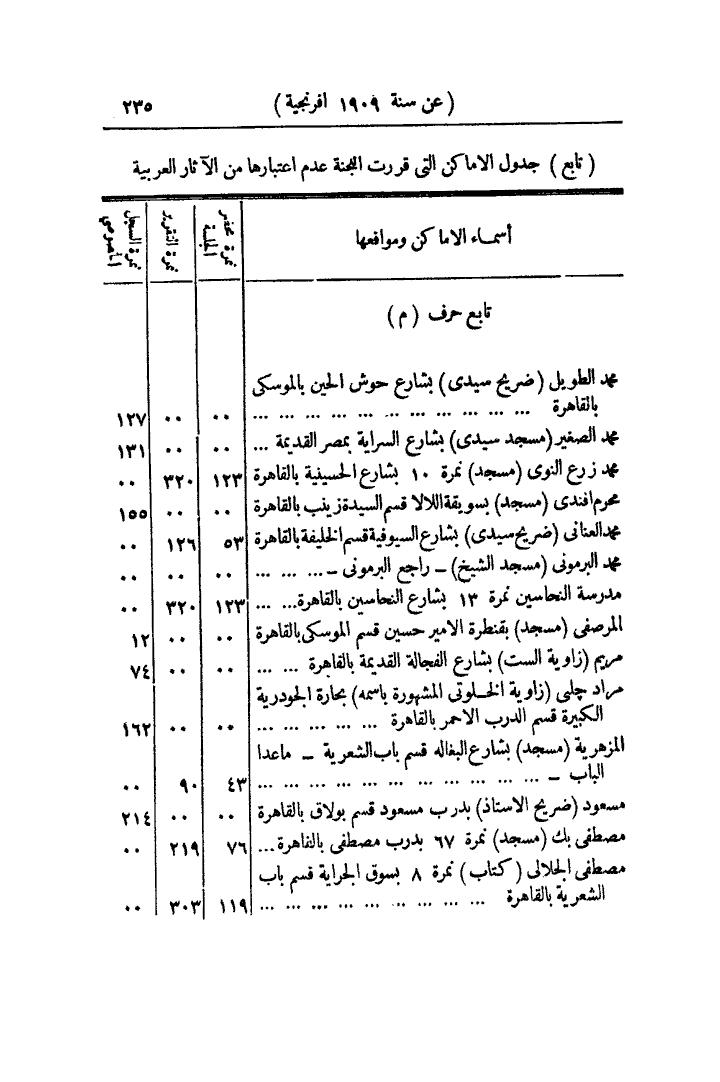 (عن سنة ١٩٠٩ افرنجية) ٢٣٥
(تابع) جدول الاماكن التى قررت اللجنة عدم اعتبارها من الآثار العربية
أسماء الاماكن ومواقعها | نمرة محضر الجلسة | نمرة التقرير | نمرة السجل الخصوصي
تابع حرف (م)
محمد الطويل (ضريح سيدى) بشارع حوش الحين بالموسكى
بالقاهرة ... ... ... ... ... ... ... ... ... ... ... .. .. ١٢٧
محمد الصغير (مسجد سيدى) بشارع السراية بمصر القديمة ... .. .. ١٣١
محمد زرع النوى (مسجد) نمرة ١٠ بشارع الحسينية بالقاهرة ١٢٣ ٣٢٠ ..
محرم افندى (مسجد) بسويقة اللالا قسم السيدة زينب بالقاهرة .. .. ١٥٥
محمد العنانى (ضريح سيدى) بشارع السيوفية قسم الخليفة بالقاهرة ٥٣ ١٢٦ ..
محمد البرمونى (مسجد الشيخ) ــ راجع البرمونى ــ ... ... ... .. .. ..
مدرسة النحاسين نمرة ١٣ بشارع النحاسين بالقاهرة... ... ١٢٣ ٣٢٠ ..
المرصفى (مسجد) بقنطرة الامير حسين قسم الموسكى بالقاهرة .. .. ١٢
مريم (زاوية الست) بشارع الفجالة القديمة بالقاهرة ... ... .. .. ٧٤
مراد چلبى (زاوية الخلوتى المشهورة باسمه) بحارة الجودرية
الكبيرة قسم الدرب الاحمر بالقاهرة ... ... ... ... ... .. .. ١٦٢
المزهرية (مسجد) بشارع البغاله قسم باب الشعرية ــ ماعدا
الباب ــ ... ... ... ... ... ... ... ... ... ... ... ٤٣ ٩٠ ..
مسعود (ضريح الاستاذ) بدرب مسعود قسم بولاق بالقاهرة .. .. ٢١٤
مصطفى بك (مسجد) نمرة ٦٧ بدرب مصطفى بالقاهرة... ٧٦ ٢١٩ ..
مصطفى الجلالى (كتاب) نمرة ٨ بسوق الجراية قسم باب
الشعرية بالقاهرة ... ... ... ... ... ... ... ... ... ١١٩ ٣٠٣ ..